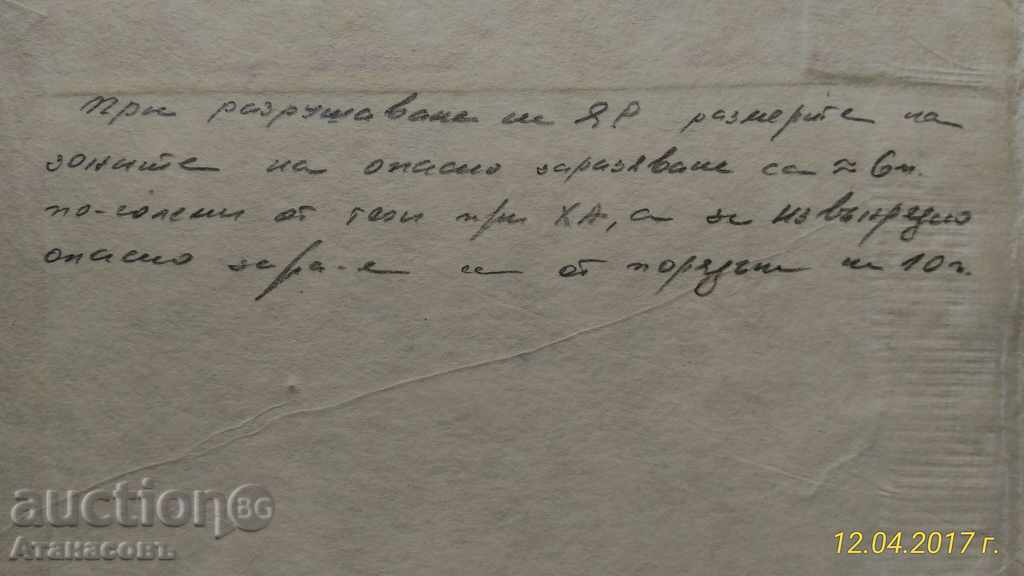 При разрушаване на ЯР размерите на
зоните на опасно заразяване са ≈ 6п.
по-големи от тези при ХА, а за извънредно
опасно зара-е са от порядъка на 10п.
auctionBG
Атанасовъ
12.04.2017 г.